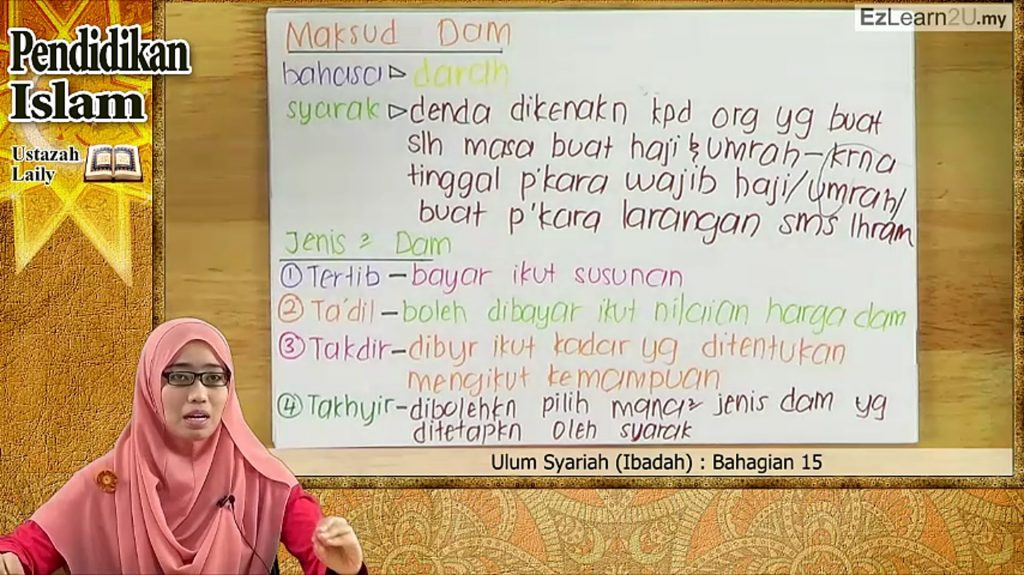 EzLearn2U.my
Pendidikan
Islam
Ustazah
Laily
Maksud Dam
bahasa ▷ darah
syarak ▷ denda dikenakn kpd org yg buat
slh masa buat haji & umrah – krna
tinggal p'kara wajib haji/umrah/
buat p'kara larangan sms Ihram
Jenis2 Dam
① Tertib – bayar ikut susunan
② Ta'dil – boleh dibayar ikut nilaian harga dam
③ Takdir – dibyr ikut kadar yg ditentukan
mengikut kemampuan
④ Takhyir – dibolehkn pilih mana2 jenis dam yg
ditetapkn oleh syarak
Ulum Syariah (Ibadah) : Bahagian 15